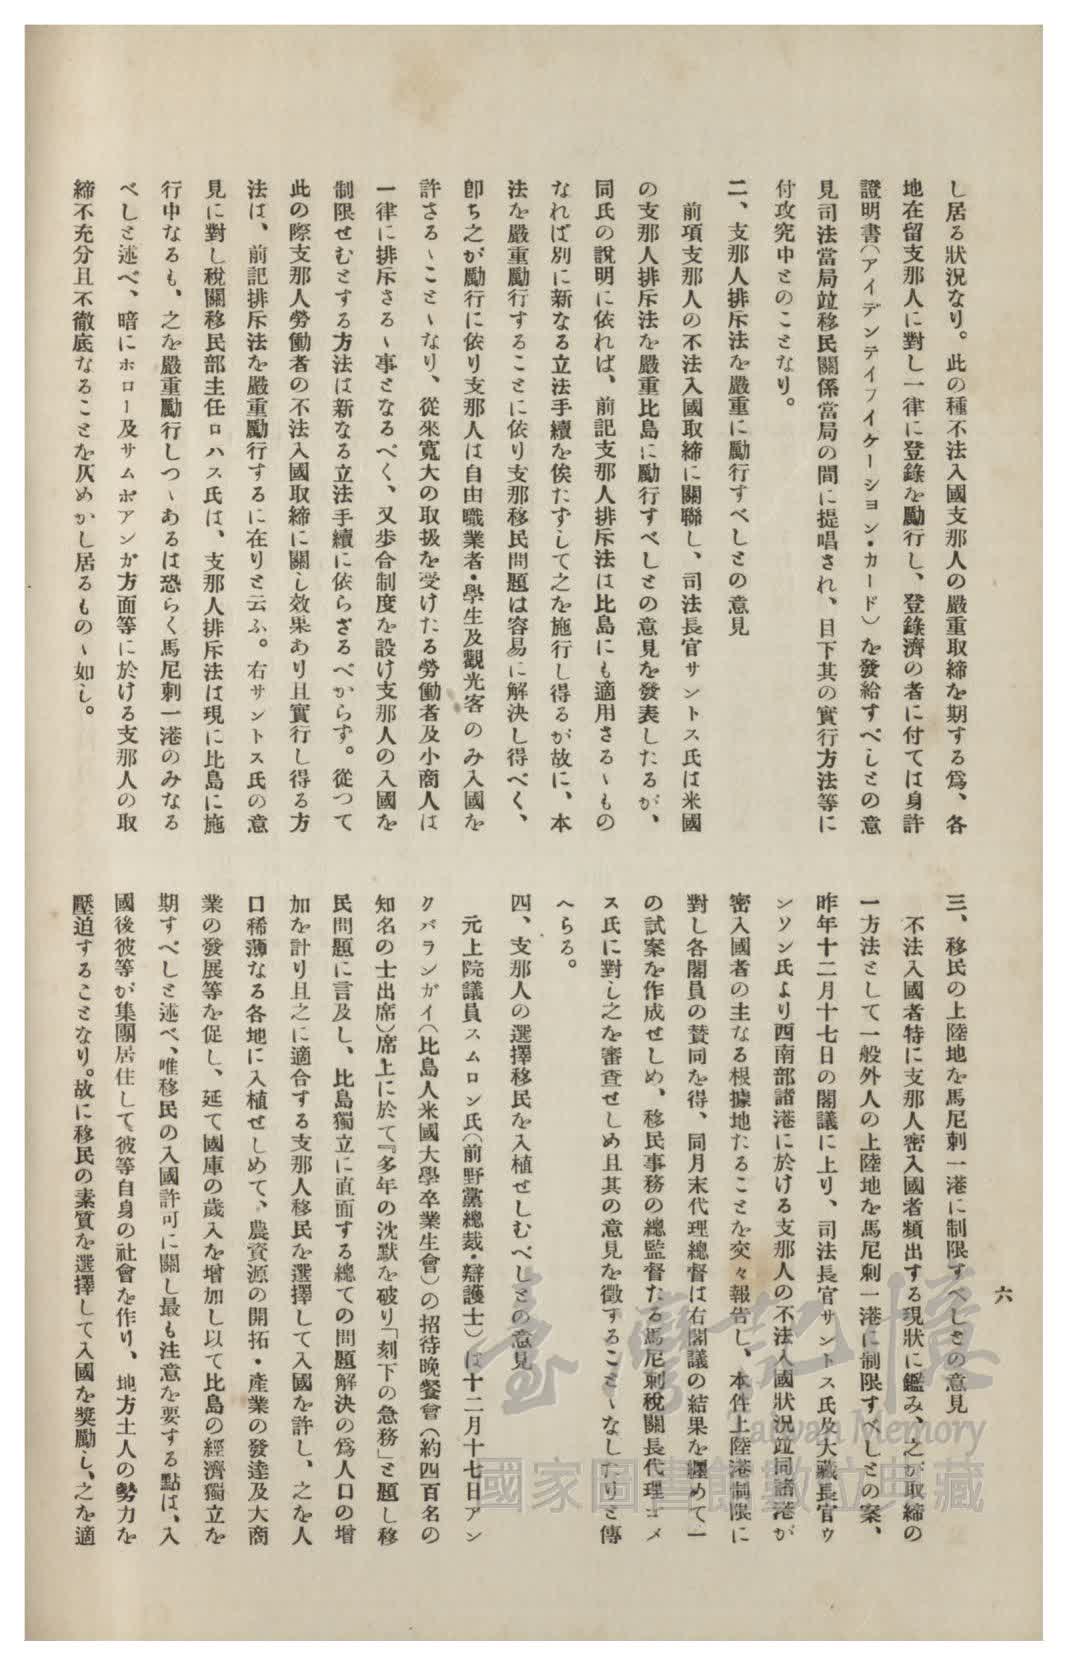 し居る狀況なり。此の種不法入國支那人の嚴重取締を期する爲、各
地在留支那人に對し一律に登錄を勵行し、登錄濟の者に付ては身許
證明書(アイデンテイフイケーション・カード)を發給すべしとの意
見司法當局竝移民關係當局の間に提唱され、目下其の實行方法等に
付攻究中とのことなり。
二、支那人排斥法を嚴重に勵行すべしとの意見
前項支那人の不法入國取締に關聯し、司法長官サントス氏は米國
の支那人排斥法を嚴重比島に勵行すべしとの意見を發表したるが、
同氏の說明に依れば、前記支那人排斥法は比島にも適用さるゝもの
なれば別に新なる立法手續を俟たずして之を施行し得るが故に、本
法を嚴重勵行することに依り支那移民問題は容易に解決し得べく、
卽ち之が勵行に依り支那人は自由職業者・學生及觀光客のみ入國を
許さるゝことゝなり、從來寬大の取扱を受けたる勞働者及小商人は
一律に排斥さるゝ事となるべく、又步合制度を設け支那人の入國を
制限せむとする方法は新なる立法手續に依らざるべからず。從つて
此の際支那人勞働者の不法入國取締に關し效果あり且實行し得る方
法は、前記排斥法を嚴重勵行するに在りと云ふ。右サントス氏の意
見に對し稅關移民部主任ロハス氏は、支那人排斥法は現に比島に施
行中なるも、之を嚴重勵行しつゝあるは恐らく馬尼剌一港のみなる
べしと述べ、暗にホロー及サムボアンガ方面等に於ける支那人の取
締不充分且不徹底なることを仄めかし居るものゝ如し。
六
三、移民の上陸地を馬尼剌一港に制限すべしとの意見
不法入國者特に支那人密入國者頻出する現狀に鑑み、之が取締の
一方法として一般外人の上陸地を馬尼剌一港に制限すべしとの案、
昨年十二月十七日の閣議に上り、司法長官サントス氏及大藏長官ウ
ンソン氏より西南部諸港に於ける支那人の不法入國狀況竝同諸港が
密入國者の主なる根據地たることを交々報告し、本件上陸港制限に
對し各閣員の贊同を得、同月末代理總督は右閣議の結果を纒めて一
の試案を作成せしめ、移民事務の總監督たる馬尼剌稅關長代理ゴメ
ス氏に對し之を審查せしめ且其の意見を徵することゝなしたりと傳
へらる。
四、支那人の選擇移民を入植せしむべしとの意見
元上院議員スムロン氏(前野黨總裁・辯護士)は十二月十七日アン
クバランガイ(比島人米國大學卒業生會)の招待晚餐會(約四百名の
知名の士出席)席上に於て『多年の沈默を破り「刻下の急務」と題し移
民問題に言及し、比島獨立に直面する總ての問題解決の爲人口の增
加を計り且之に適合する支那人移民を選擇して入國を許し、之を人
口稀薄なる各地に入植せしめて、農資源の開拓・產業の發達及大商
業の發展等を促し、延て國庫の歲入を增加し以て比島の經濟獨立を
期すべしと述べ、唯移民の入國許可に關し最も注意を要する點は、入
國後彼等が集團居住して彼等自身の社會を作り、地方土人の勢力を
壓迫することなり。故に移民の素質を選擇して入國を獎勵し、之を適
臺灣記憶
Taiwan Memory
國家圖書館數位典藏